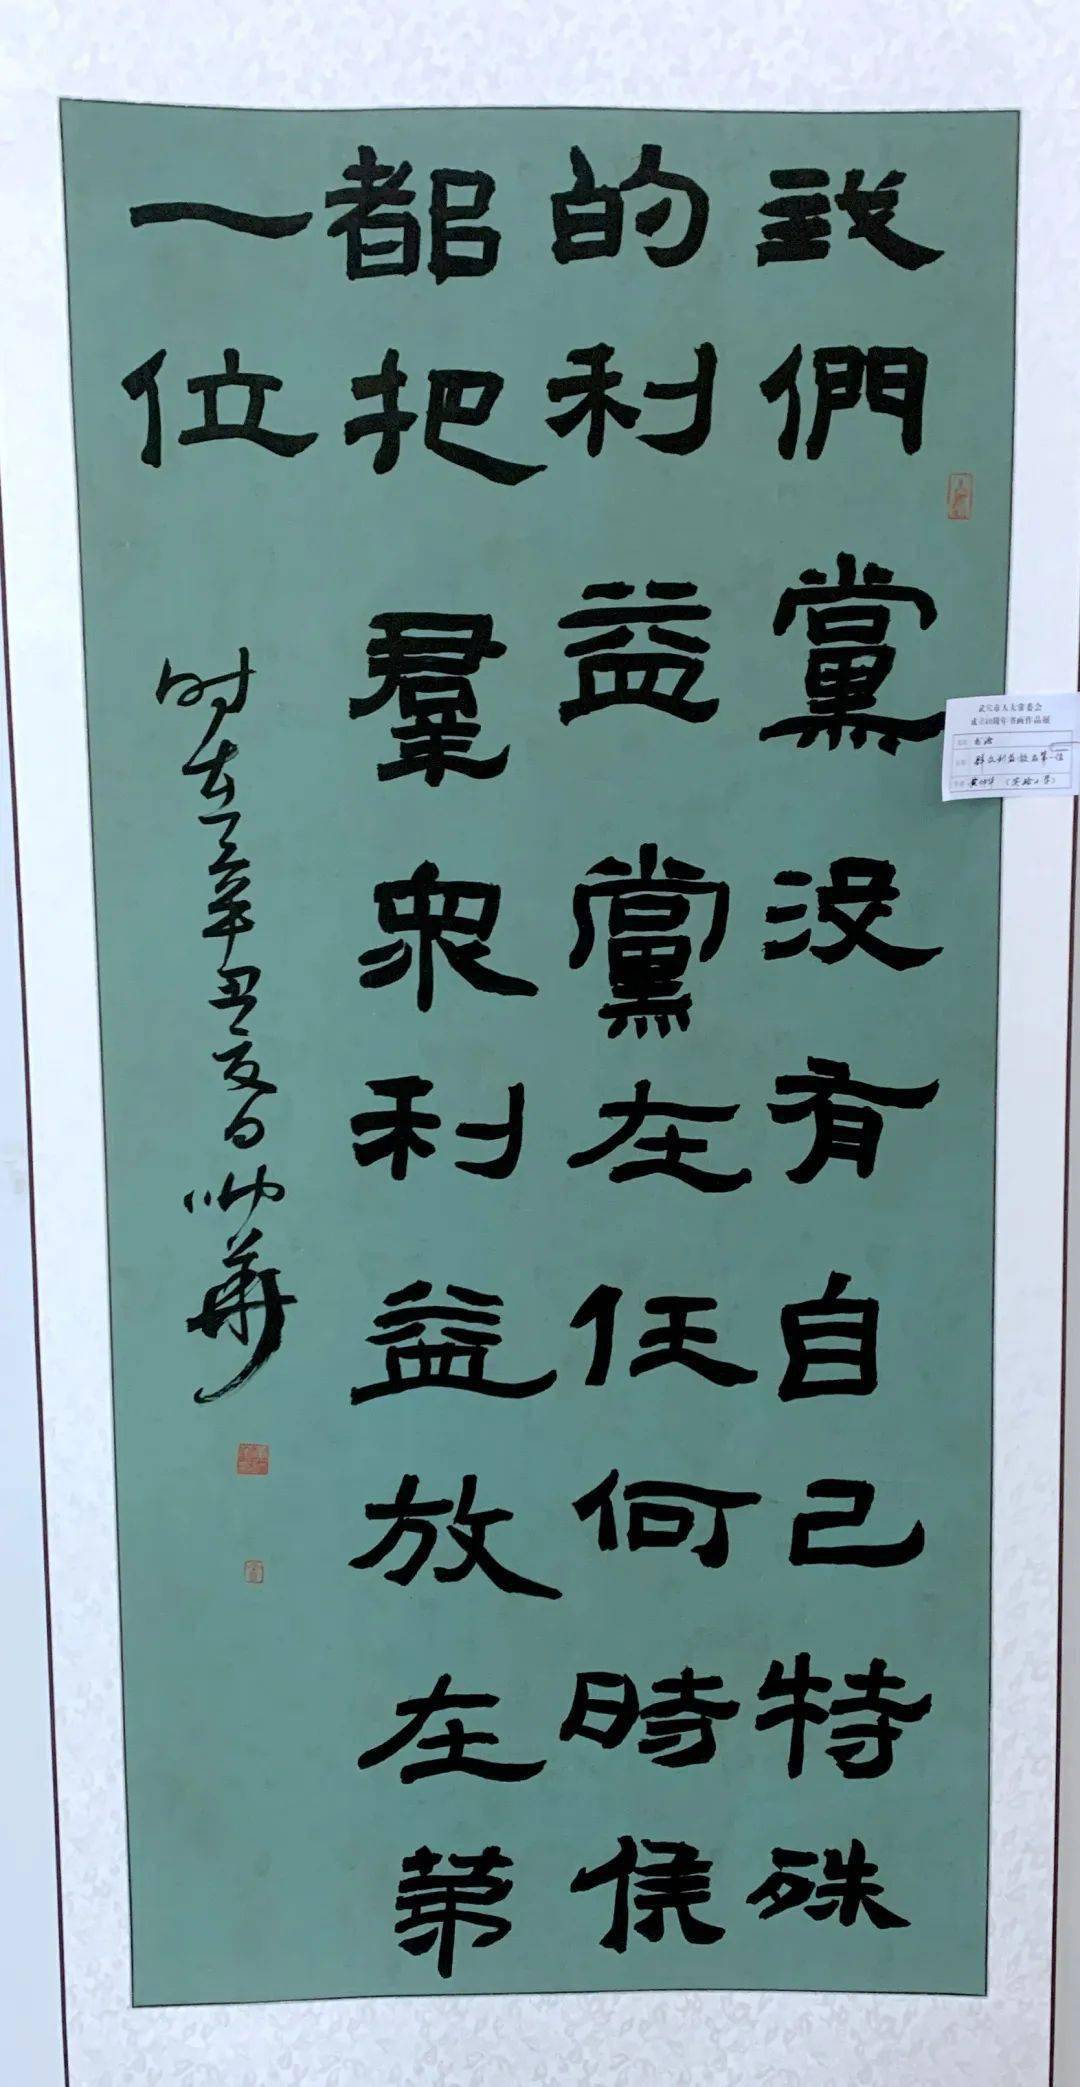 我們黨没有自己特殊
的利益黨在任何時候
都把羣衆利益放在第
一位
时在辛丑夏日帅華
武穴市人大常委会
成立40周年书画作品展
书法
群众利益放在第一位